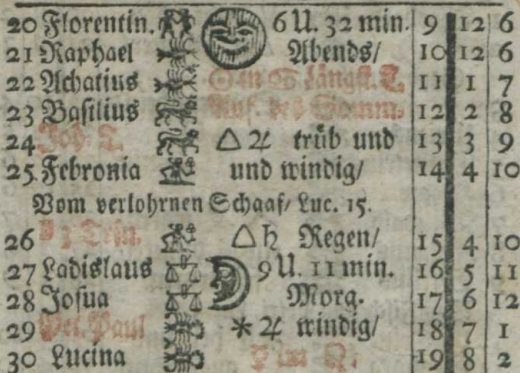 20 Florentin. 6 U. 32 min. 9 12 6
21 Raphael Abends/ 10 12 6
22 Achatius ☉ in ♋ längst. T. 11 1 7
23 Basilius Anf. des Somm. 12 2 8
24 Joh. T. △ ♃ trüb und 13 3 9
25 Febronia und windig/ 14 4 10
Vom verlohrnen Schaaf/ Luc. 15.
26 △ ♄ Regen/ 15 4 10
27 Ladislaus 9 U. 11 min. 16 5 11
28 Josua Morg. 17 6 12
29 Pet. Paul ⚹ ♃ windig/ 18 7 1
30 Lucina 19 8 2